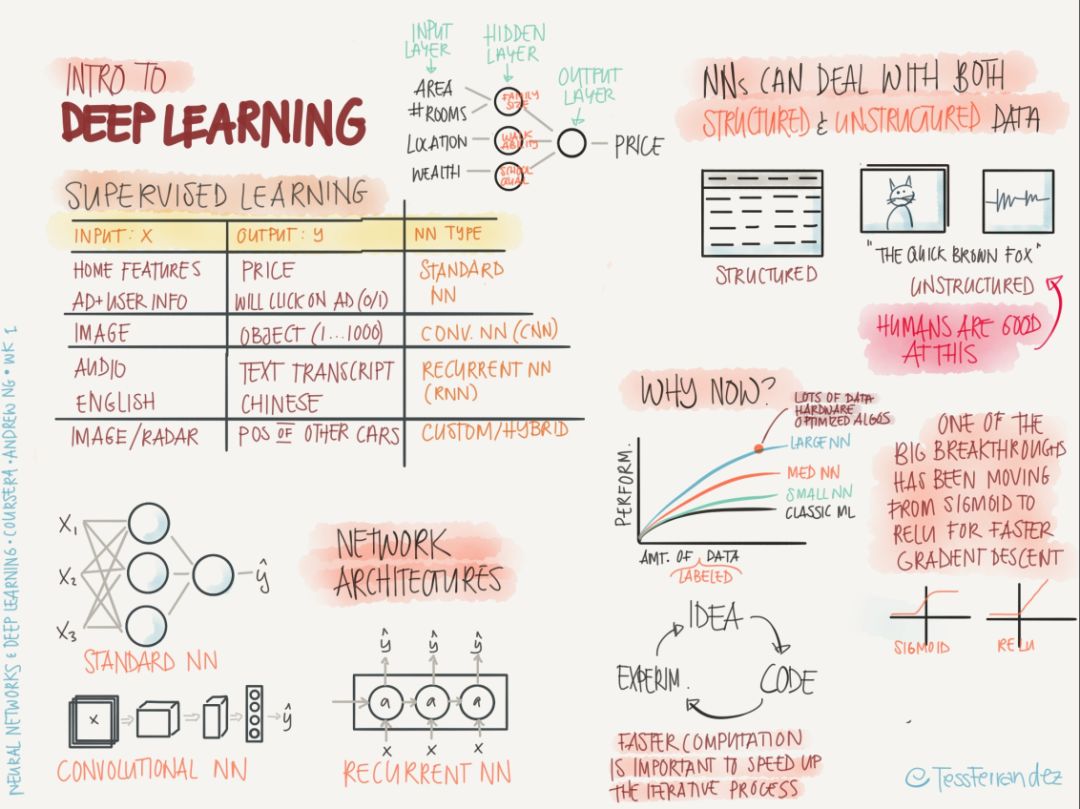 INTRO TO
DEEP LEARNING
INPUT
LAYER
HIDDEN
LAYER
OUTPUT
LAYER
AREA
#ROOMS
LOCATION
WEALTH
FAMILY
SIZE
WALK
ABILITY
SCHOOL
QUAL
PRICE
SUPERVISED LEARNING
INPUT: X OUTPUT: y NN TYPE
HOME FEATURES PRICE STANDARD
AD+USER INFO WILL CLICK ON AD (0/1) NN
IMAGE OBJECT (1...1000) CONV. NN (CNN)
AUDIO TEXT TRANSCRIPT RECURRENT NN
ENGLISH CHINESE (RNN)
IMAGE/RADAR POS OF OTHER CARS CUSTOM/HYBRID
X1
X2
X3
ŷ
STANDARD NN
X
ŷ
CONVOLUTIONAL NN
NETWORK
ARCHITECTURES
ŷ ŷ ŷ
a a a
X X X
RECURRENT NN
NNs CAN DEAL WITH BOTH
STRUCTURED & UNSTRUCTURED DATA
STRUCTURED
"THE QUICK BROWN FOX"
UNSTRUCTURED
HUMANS ARE GOOD
AT THIS
WHY NOW?
LOTS OF DATA
HARDWARE
OPTIMIZED ALGOS
LARGE NN
MED NN
SMALL NN
CLASSIC ML
PERFORM.
AMT. OF DATA
LABELED
ONE OF THE
BIG BREAKTHROUGHS
HAS BEEN MOVING
FROM SIGMOID TO
RELU FOR FASTER
GRADIENT DESCENT
SIGMOID
RELU
IDEA
CODE
EXPERIM.
FASTER COMPUTATION
IS IMPORTANT TO SPEED UP
THE ITERATIVE PROCESS
NEURAL NETWORKS & DEEP LEARNING · COURSERA · ANDREW NG · WK 1
@TessFerrandez